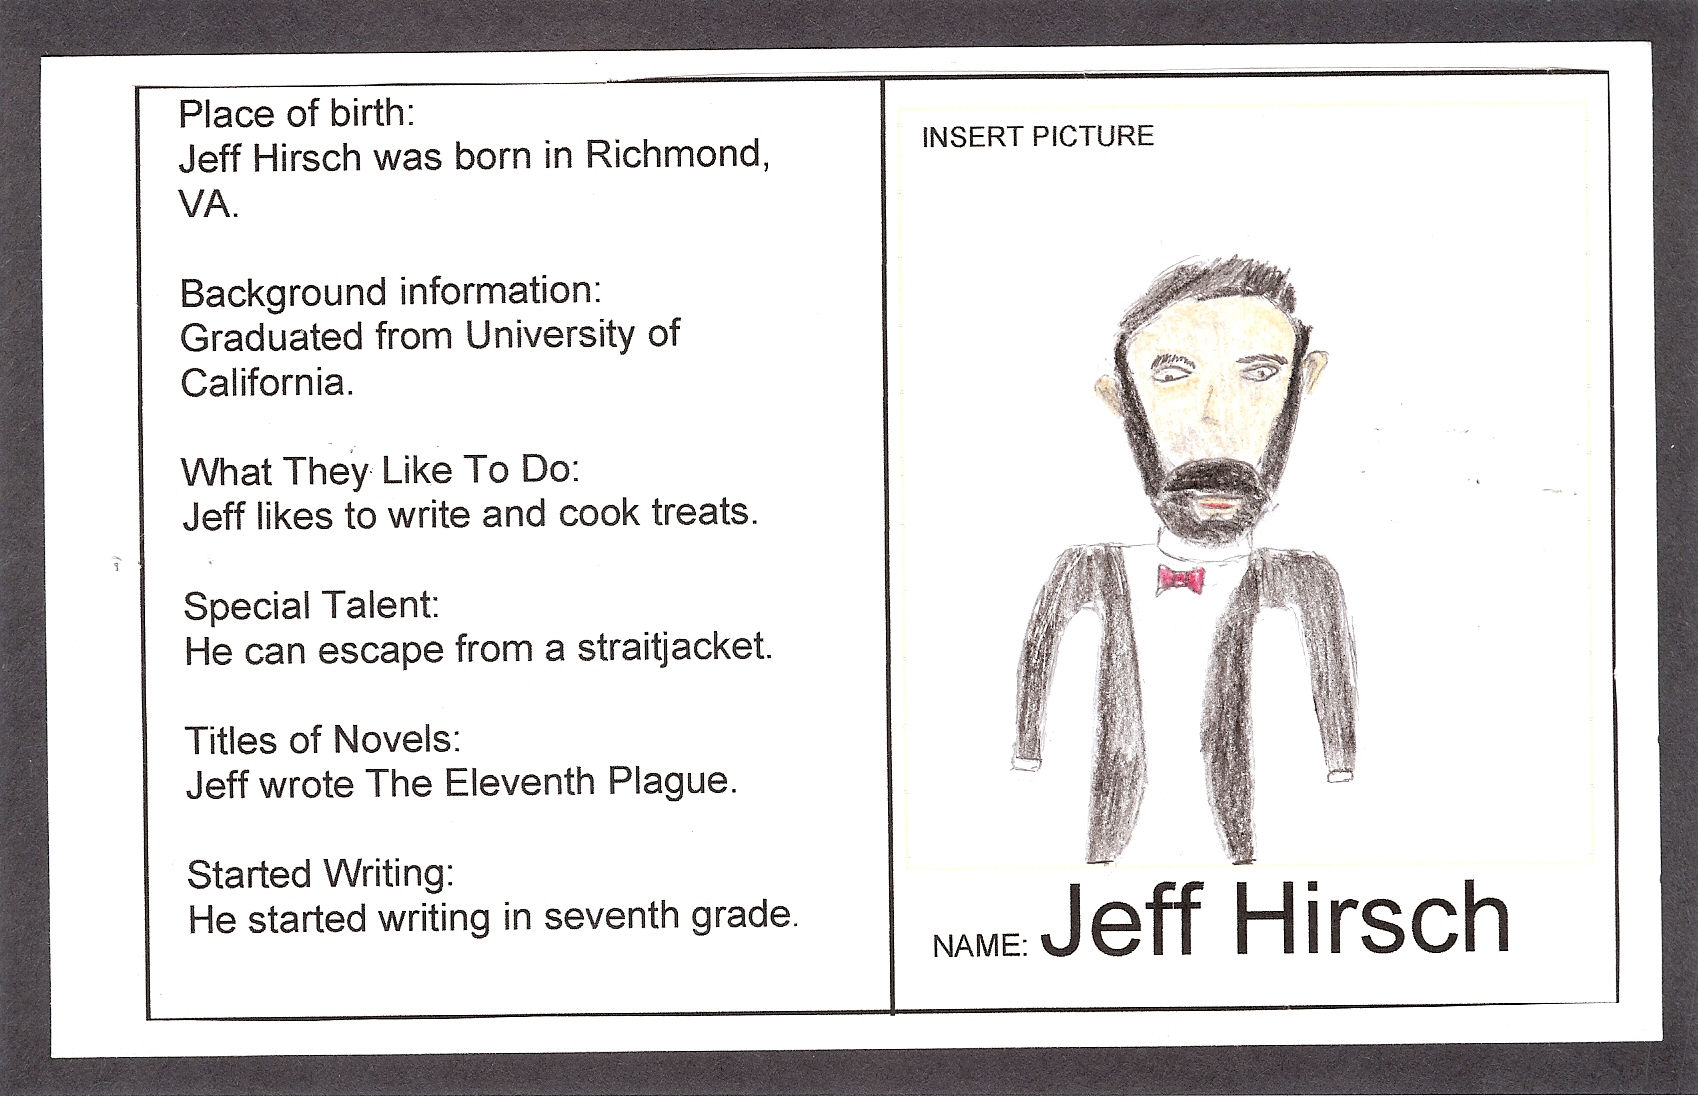 Place of birth:
Jeff Hirsch was born in Richmond,
VA.
Background information:
Graduated from University of
California.
What They Like To Do:
Jeff likes to write and cook treats.
Special Talent:
He can escape from a straitjacket.
Titles of Novels:
Jeff wrote The Eleventh Plague.
Started Writing:
He started writing in seventh grade.
INSERT PICTURE
NAME: Jeff Hirsch